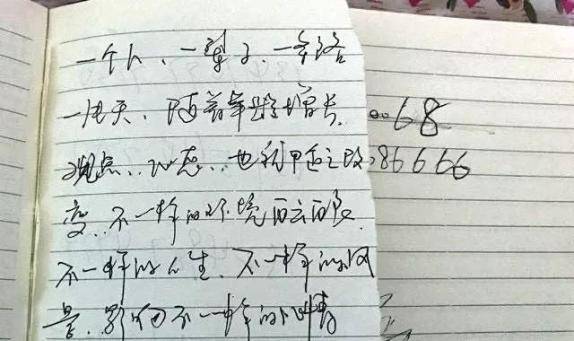 一个人、一辈子、一条路
一片天、随着年龄增长、
观点、心态、也之改
变、不一样的环境
不一样的人生、不一样的风
景、影响不一样的心情
68
86666